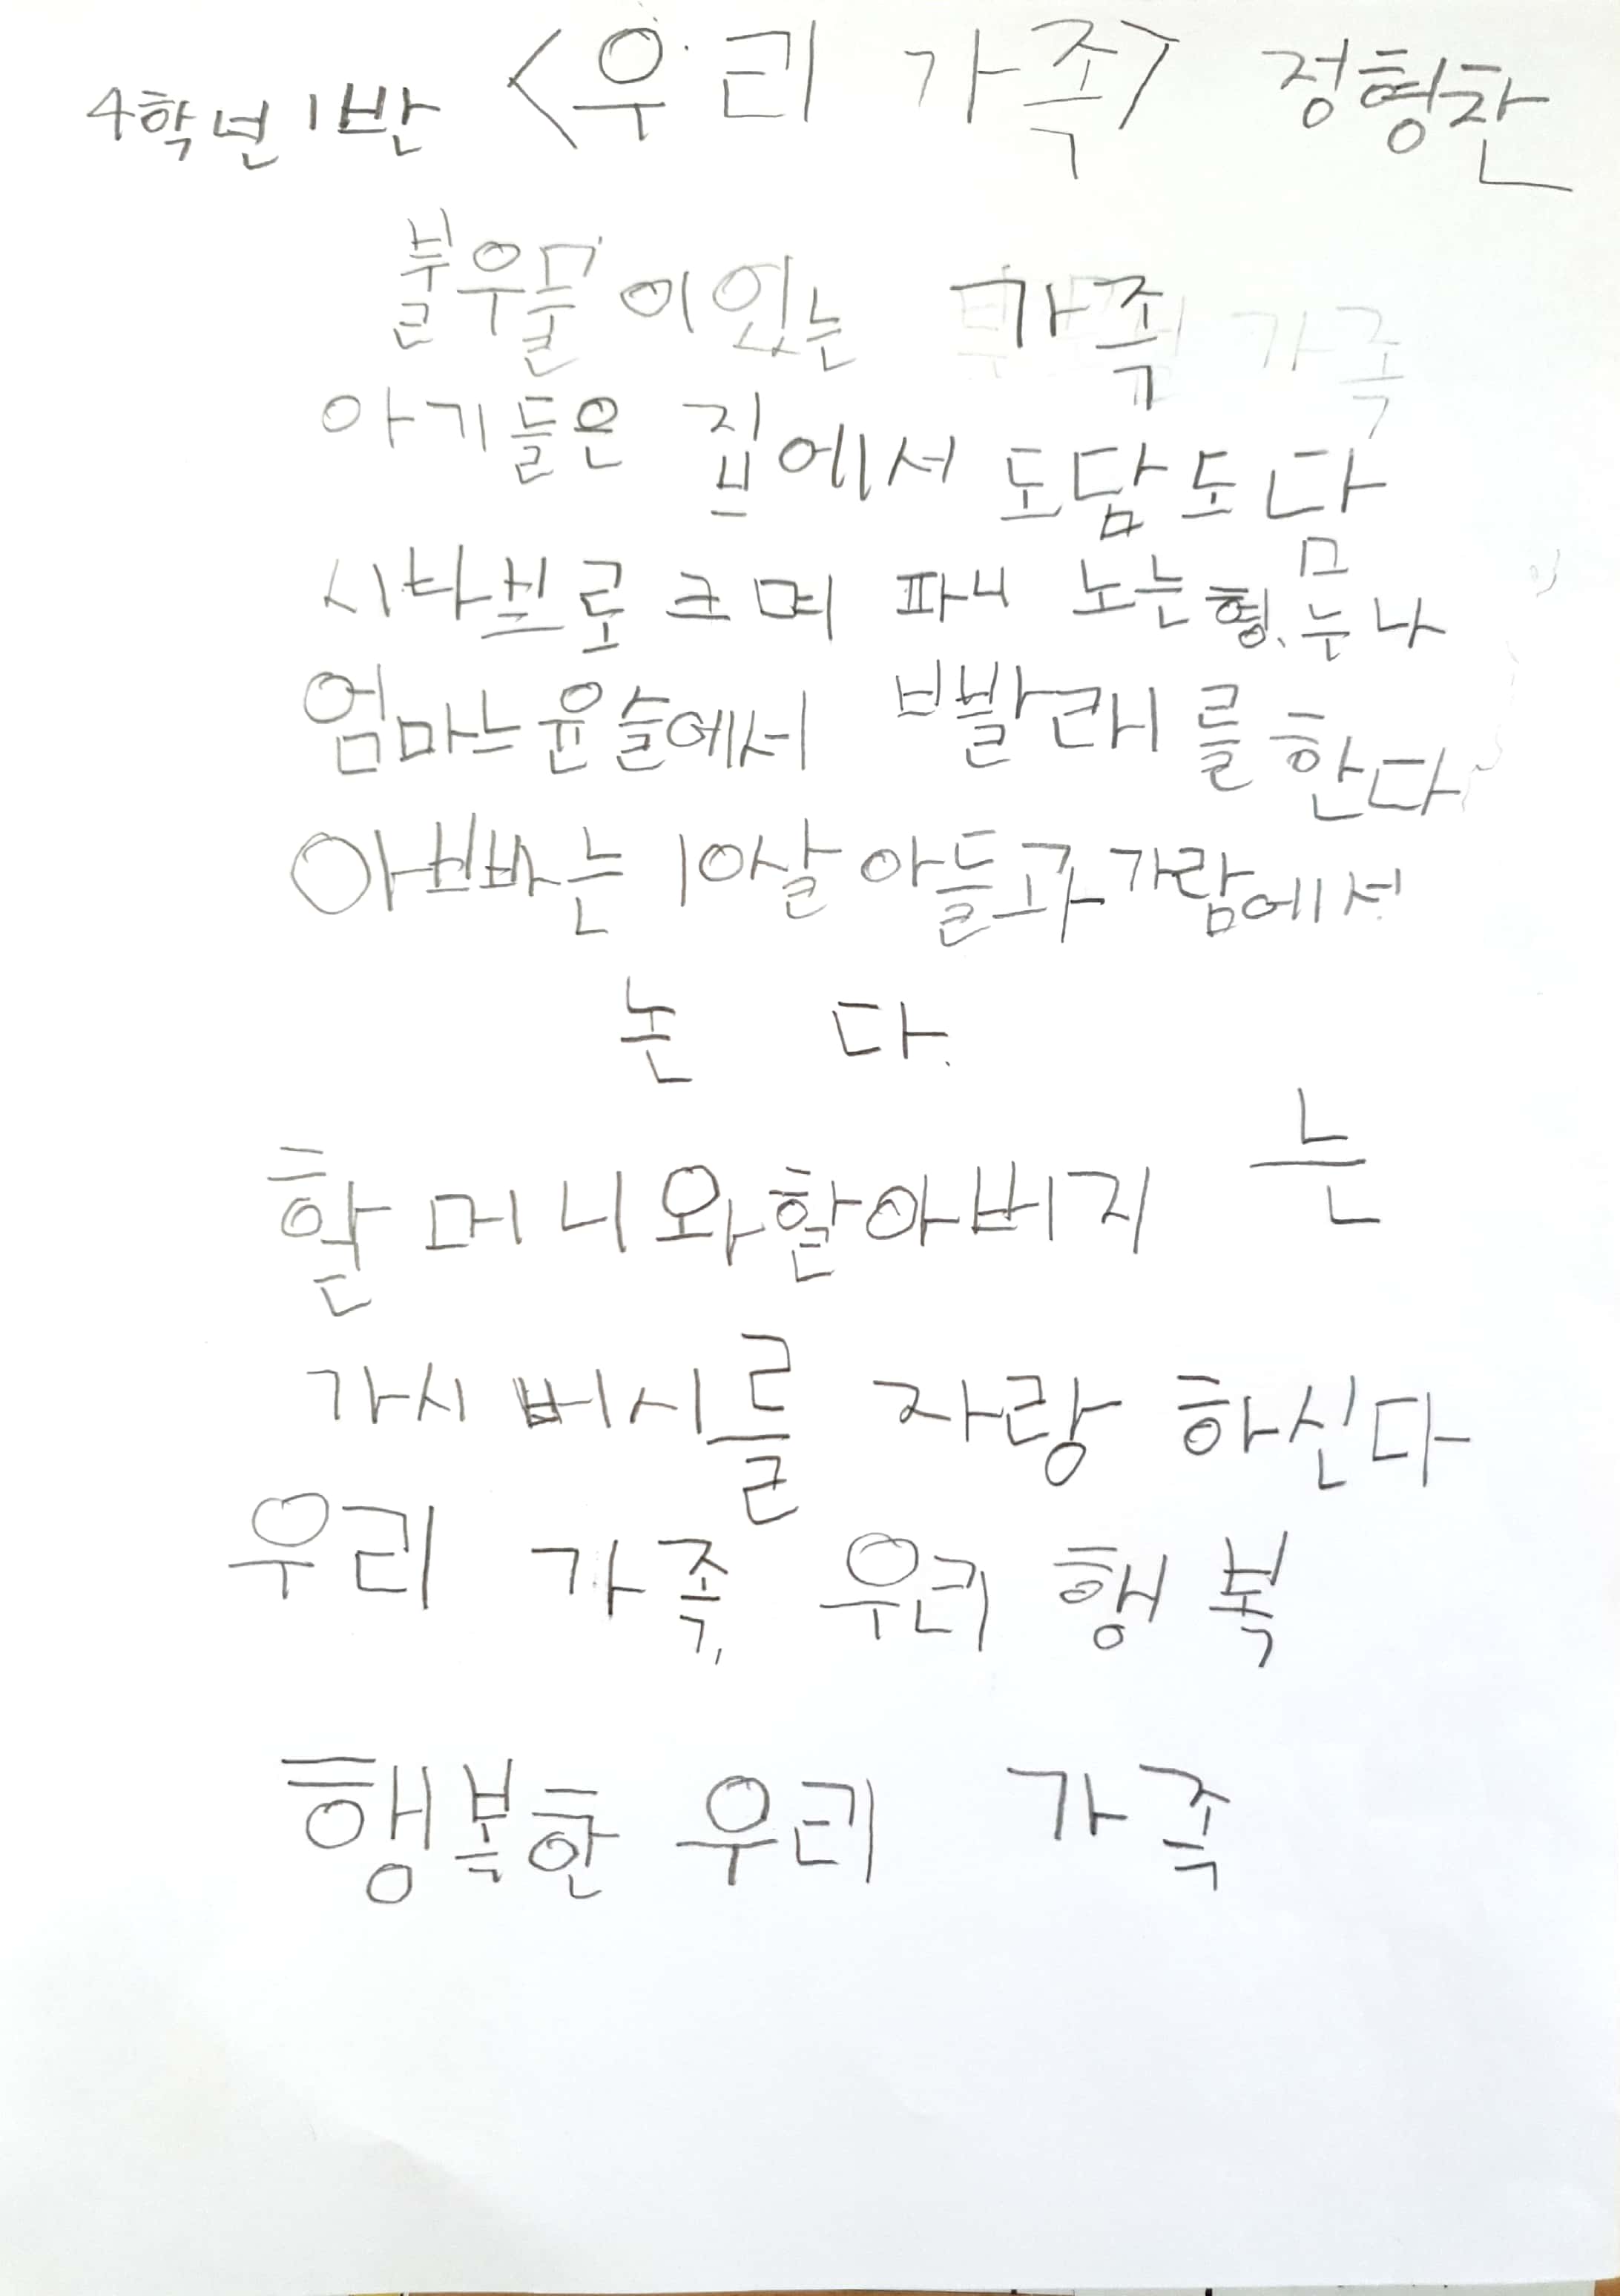 <우리 가족> 정형찬
4학년 1반
볼우물이 있는 가족
아기들은 집에서 도담도담
시나브로 크며 꽈니 노는 형, 누나
엄마는 윤슬에서 빨래를 한다
아빠는 10살 아들과 가람에서
논다.
할머니와 할아버지는
가시버시를 자랑 하신다
우리 가족, 우리 행복
행복한 우리 가족